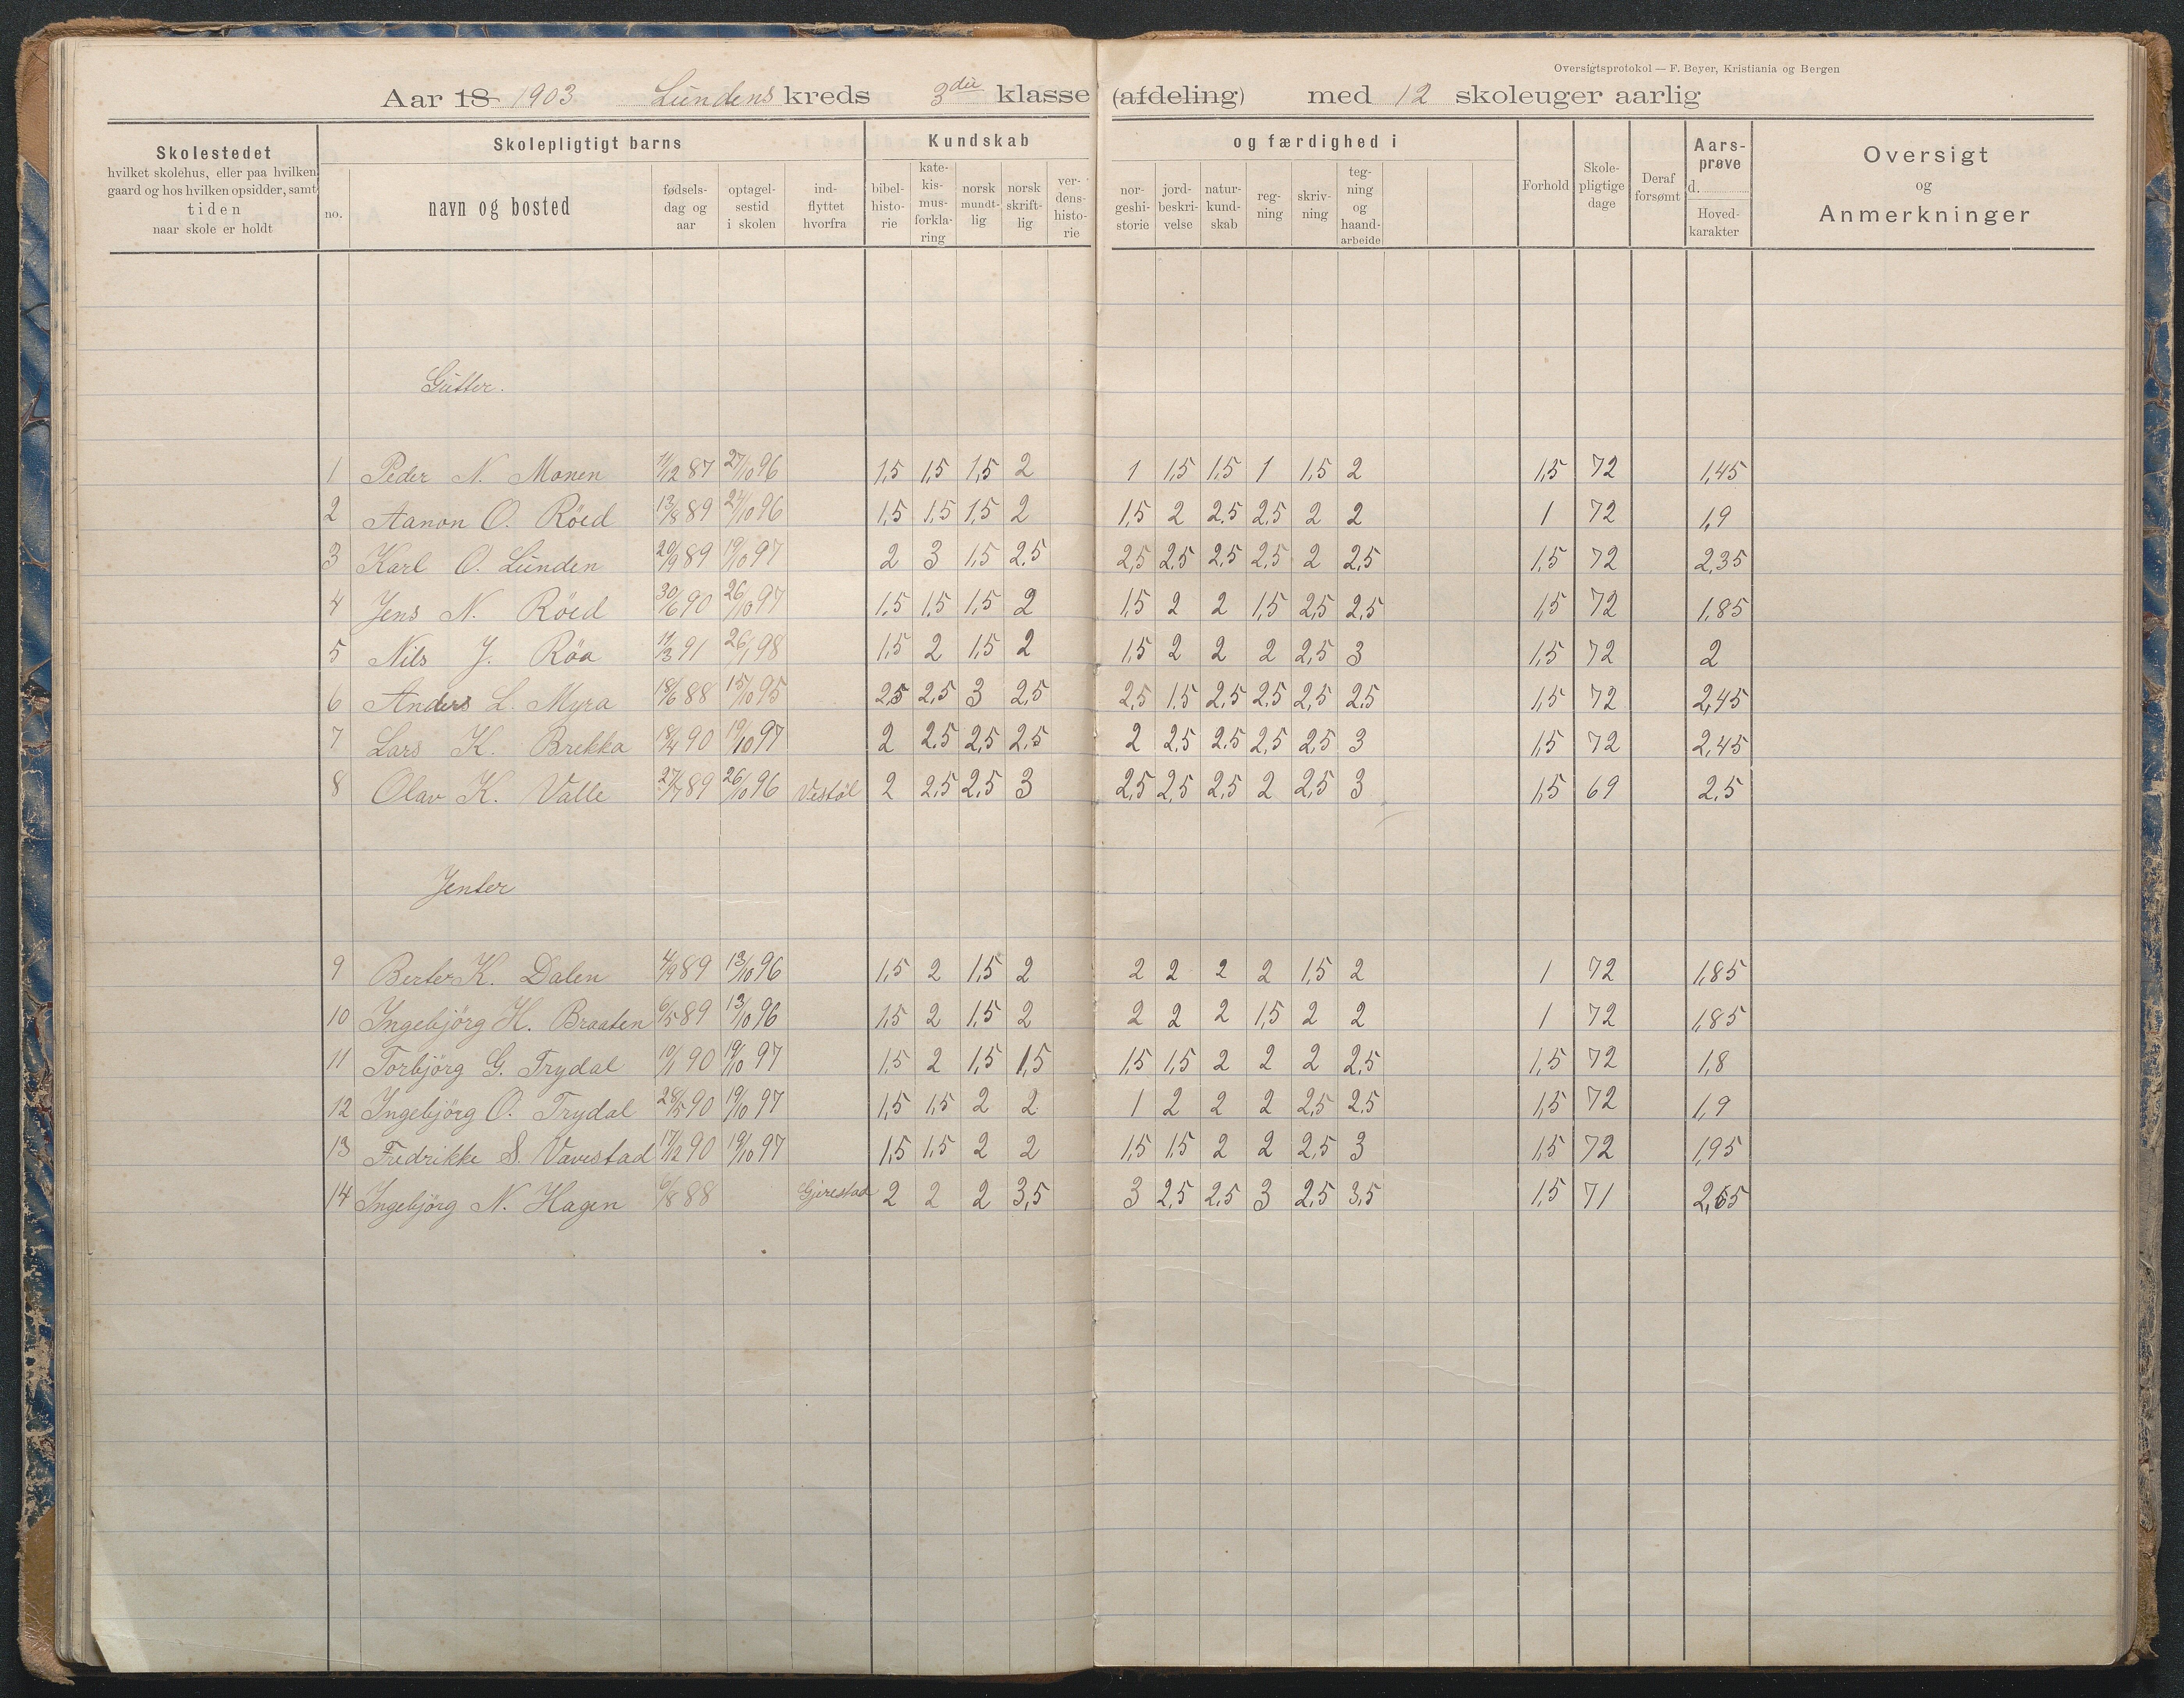 Oversigtsprotokol — F. Beyer, Kristiania og Bergen
Aar 18 1903 Lundens kreds 3die klasse (afdeling) med 12 skoleuger aarlig
Skolestedet
hvilket skolehus, eller paa hvilken
gaard og hos hvilken opsidder, samt
tiden
naar skole er holdt
Skolepligtigt barns
no.
navn og bosted
fødsels-
dag og
aar
optagel-
sestid
i skolen
ind-
flyttet
hvorfra
Kundskab
bibel-
histo-
rie
kate-
kis-
mus-
forkla-
ring
norsk
mundt-
lig
norsk
skrift-
lig
ver-
dens-
histo-
rie
og færdighed i
nor-
geshi-
storie
jord-
beskri-
velse
natur-
kund-
skab
reg-
ning
skriv-
ning
teg-
ning
og
haand-
arbeide
Forhold
Skole-
pligtige
dage
Deraf
forsømt
Aars-
prøve
d.
Hoved-
karakter
Oversigt
og
Anmerkninger
Gutter.
1 Peder N. Monen 11/12 87 27/10 96 1,5 1,5 1,5 2 1 1,5 1,5 1 1,5 2 1,5 72 1,45
2 Aanon O. Röed 13/8 89 27/10 96 1,5 1,5 1,5 2 1,5 2 2,5 2,5 2 2 1 72 1,9
3 Karl O. Lunden 20/9 89 19/10 97 2 3 1,5 2,5 2,5 2,5 2,5 2,5 2 2,5 1,5 72 2,35
4 Jens N. Röed 30/6 90 26/10 97 1,5 1,5 1,5 2 1,5 2 2 1,5 2,5 2,5 1,5 72 1,85
5 Nils J. Röa 11/3 91 26/1 98 1,5 2 1,5 2 1,5 2 2 2 2,5 3 1,5 72 2
6 Anders L. Myra 18/6 88 15/10 95 2,5 2,5 3 2,5 2,5 1,5 2,5 2,5 2,5 2,5 1,5 72 2,45
7 Lars K. Brekka 18/4 90 19/10 97 2 2,5 2,5 2,5 2 2,5 2,5 2,5 2,5 3 1,5 72 2,45
8 Olav K. Valle 27/7 89 26/10 96 Vestöl 2 2,5 2,5 3 2,5 2,5 2,5 2 2,5 3 1,5 69 2,5
Jenter
9 Berter K. Dalen 4/9 89 13/10 96 1,5 2 1,5 2 2 2 2 2 1,5 2 1 72 1,85
10 Ingebjörg H. Braaten 6/5 89 13/10 96 1,5 2 1,5 2 2 2 2 1,5 2 2 1 72 1,85
11 Torbjörg G. Trydal 10/1 90 19/10 97 1,5 2 1,5 1,5 1,5 1,5 2 2 2 2,5 1,5 72 1,8
12 Ingebjörg O. Trydal 28/5 90 19/10 97 1,5 1,5 2 2 1 2 2 2 2,5 2,5 1,5 72 1,9
13 Fredrikke S. Vavestad 17/2 90 19/10 97 1,5 1,5 2 2 1,5 1,5 2 2 2,5 3 1,5 72 1,95
14 Ingebjörg N. Hagen 6/8 88 Gjerestad 2 2 2 3,5 3 2,5 2,5 3 2,5 3,5 1,5 71 2,65